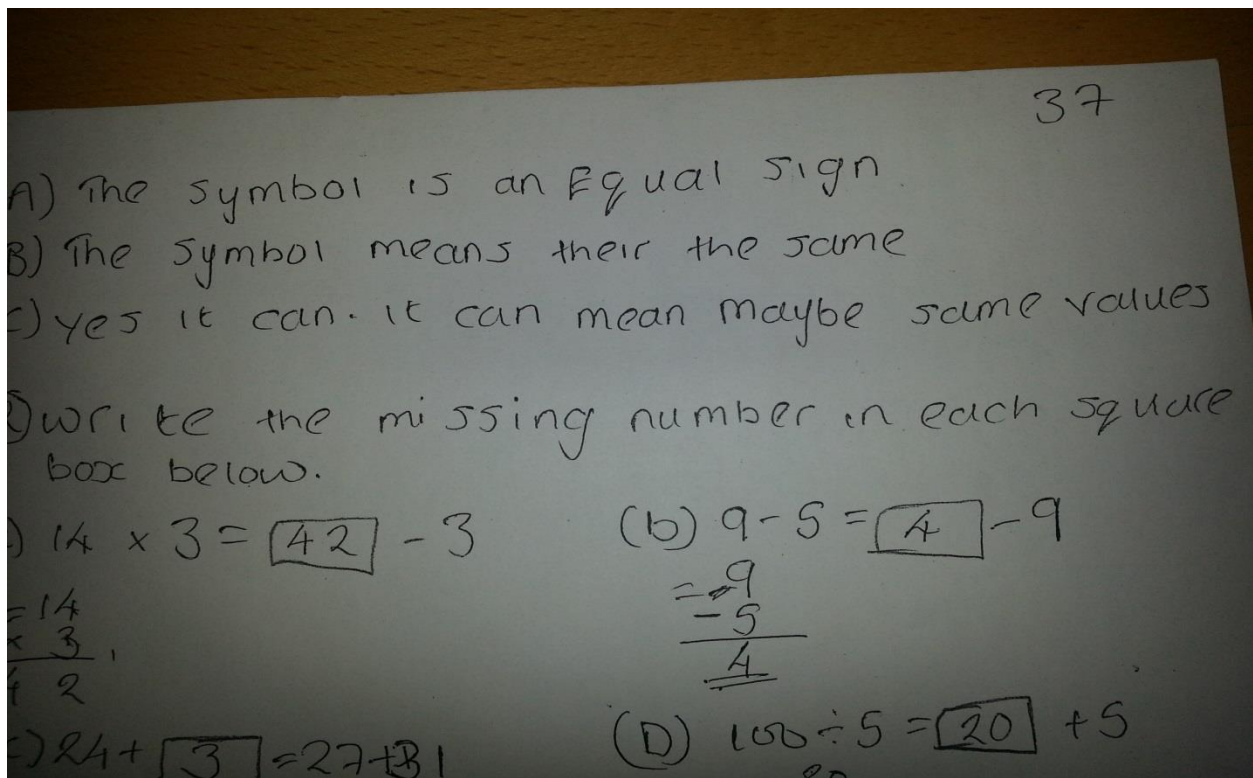 37
A) The symbol is an Equal sign
B) The symbol means their the same
C) yes it can. it can mean maybe same values
write the missing number in each square
box below.
) 14 x 3 = 42 - 3 (b) 9 - 5 = 4 - 9
= 14 = 9
x 3 - 5
42 4
) 24 + 3 = 27 + 31 (D) 100 ÷ 5 = 20 + 5